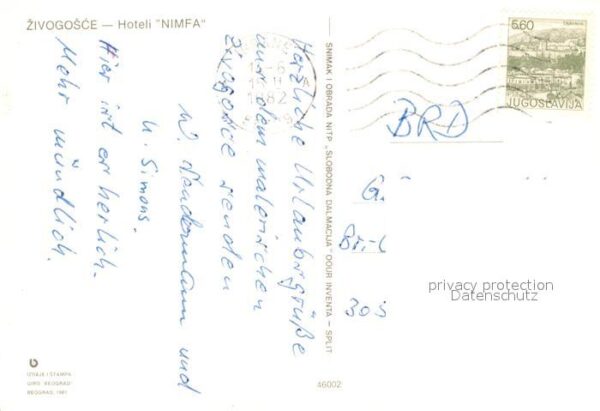 ŽIVOGOŠĆE — Hoteli "NIMFA"
Herzliche Urlaubsgrüße
aus dem malerischen
Živogošće senden
W. und
U. Simons.
Hier ist es herrlich.
Mehr mündlich.
SNIMAK I OBRADA NITP „SLOBODNA DALMACIJA" OOUR INVENTA — SPLIT
1982
6.60
JUGOSLAVIJA
BRD
G.
privacy protection
Datenschutz
IZDAJE I ŠTAMPA
BEOGRAD 1981
46002